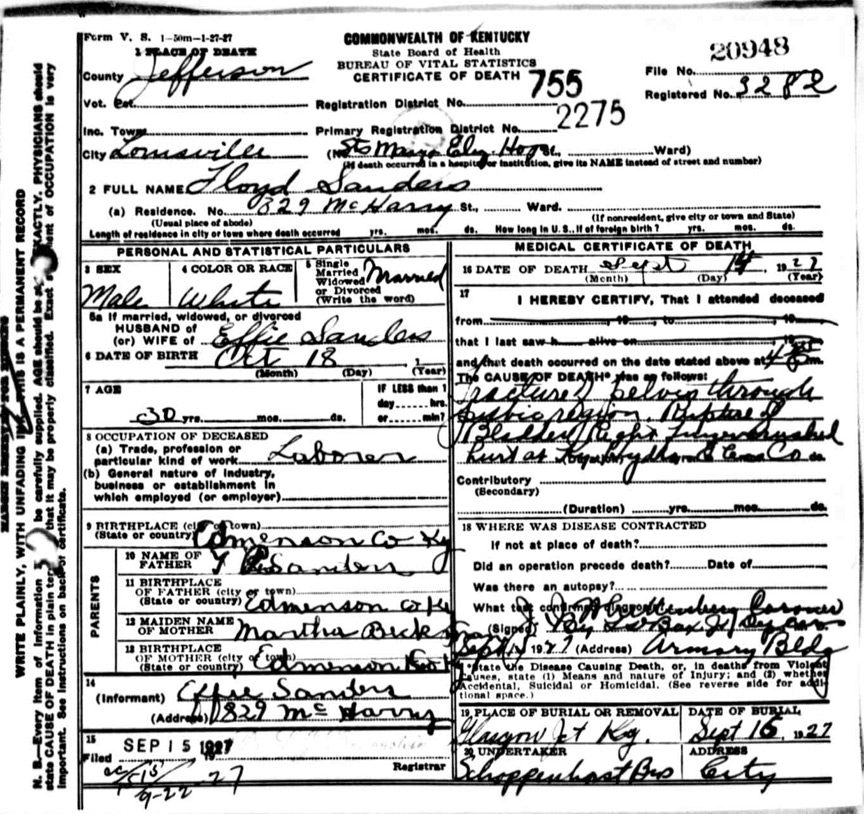 Form V. S. 1-50m-1-27-27
COMMONWEALTH OF KENTUCKY
State Board of Health
BUREAU OF VITAL STATISTICS
CERTIFICATE OF DEATH
20948
File No.
Registered No. 3282
1 PLACE OF DEATH
County Jefferson
Vot. Pct.
Registration District No. 755
Inc. Town
Primary Registration District No. 2275
City Louisville (No. Sts Mary Eliz Hosp Ward)
(If death occurred in a hospital or institution, give its NAME instead of street and number)
2 FULL NAME Floyd Sanders
(a) Residence. No. 1829 McHarry St., Ward.
(Usual place of abode) (If nonresident, give city or town and State)
Length of residence in city or town where death occurred yrs. mos. ds. How long in U. S., if of foreign birth? yrs. mos. ds.
PERSONAL AND STATISTICAL PARTICULARS
3 SEX
Male
4 COLOR OR RACE
White
5 Single Married Widowed or Divorced (Write the word)
Married
5a If married, widowed, or divorced
HUSBAND of
(or) WIFE of Effie Sanders
6 DATE OF BIRTH Oct 18, 1
(Month) (Day) (Year)
7 AGE
30 yrs. mos. ds.
IF LESS than 1
day hrs.
or min?
8 OCCUPATION OF DECEASED
(a) Trade, profession or
particular kind of work Laborer
(b) General nature of industry,
business or establishment in
which employed (or employer)
9 BIRTHPLACE (city or town)
(State or country) Edmenson Co Ky
PARENTS
10 NAME OF
FATHER Sanders
11 BIRTHPLACE
OF FATHER (city or town)
(State or country) Edmenson Co Ky
12 MAIDEN NAME
OF MOTHER Martha Beck
13 BIRTHPLACE
OF MOTHER (city or town)
(State or country) Edmenson Co Ky
14
(Informant) Effie Sanders
(Address) 1829 McHarry
15
Filed SEP 15 1927
Registrar
9-22-27
MEDICAL CERTIFICATE OF DEATH
16 DATE OF DEATH Sept 14, 1927
(Month) (Day) (Year)
17
I HEREBY CERTIFY, That I attended deceased
from 19 to 19
that I last saw h alive on 19
and that death occurred on the date stated above at m.
The CAUSE OF DEATH* was as follows:
Fractured pelvis through
pubic region. Rupture of
Bladder Right finger crushed
hurt at Ky Co
Contributory
(Secondary)
(Duration) yrs. mos. ds.
18 WHERE WAS DISEASE CONTRACTED
If not at place of death?
Did an operation precede death? Date of
Was there an autopsy?
What test confirmed diagnosis? Coroner
(Signed) By
Sept 15 1927 (Address) Armory Bldg
*State the Disease Causing Death, or, in deaths from Violent
Causes, state (1) Means and nature of Injury; and (2) whether
Accidental, Suicidal or Homicidal. (See reverse side for addi-
tional space.)
19 PLACE OF BURIAL OR REMOVAL
Glasgow Jct Ky.
DATE OF BURIAL
Sept 16, 1927
20 UNDERTAKER
Schoppenhorst Bros
ADDRESS
City
WRITE PLAINLY, WITH UNFADING INK—THIS IS A PERMANENT RECORD
N. B.—Every item of information should be carefully supplied. AGE should be stated EXACTLY. PHYSICIANS should
state CAUSE OF DEATH in plain terms, so that it may be properly classified. Exact statement of OCCUPATION is very
important. See instructions on back of certificate.